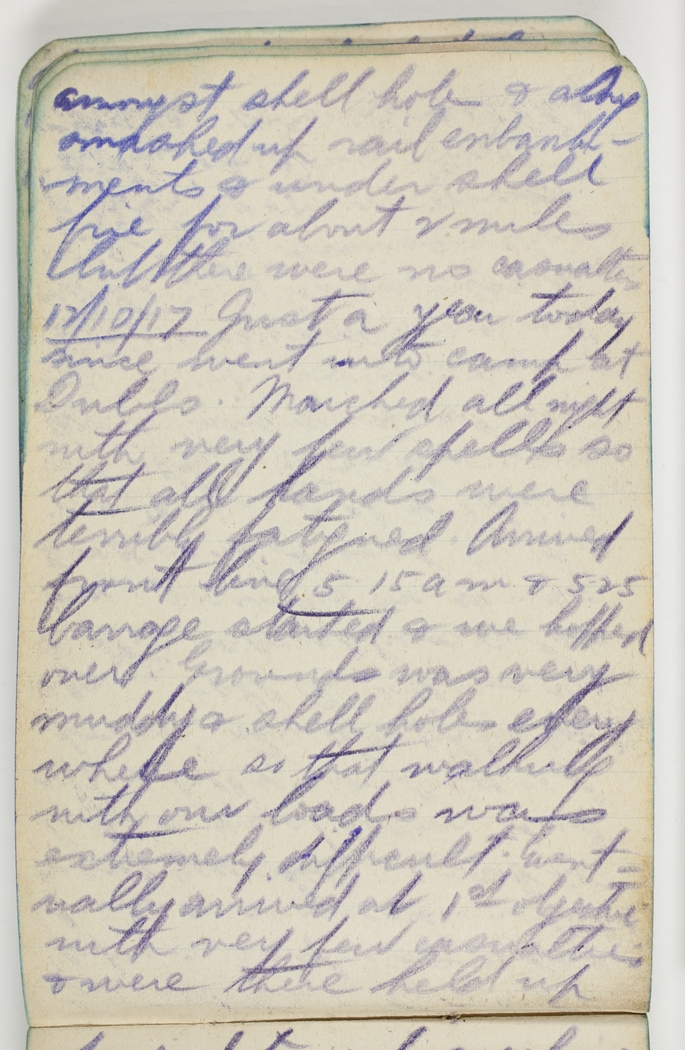 amongst shell holes & along
smashed up rail embank-
ments & under shell
fire for about 2 miles
but there were no casualties
12/10/17 Just a year today
since went into camp at
Dubbo. Marched all night
with very few spells so
that all hands were
terribly fatigued. Arrived
front line 5 15 am & 525
barrage started & we hopped
over. Grounds was very
muddy & shell holes every
where so that walking
with our loads was
extremely difficult. Event-
ually arrived at 1st objective
with very few casualties
& were there held up